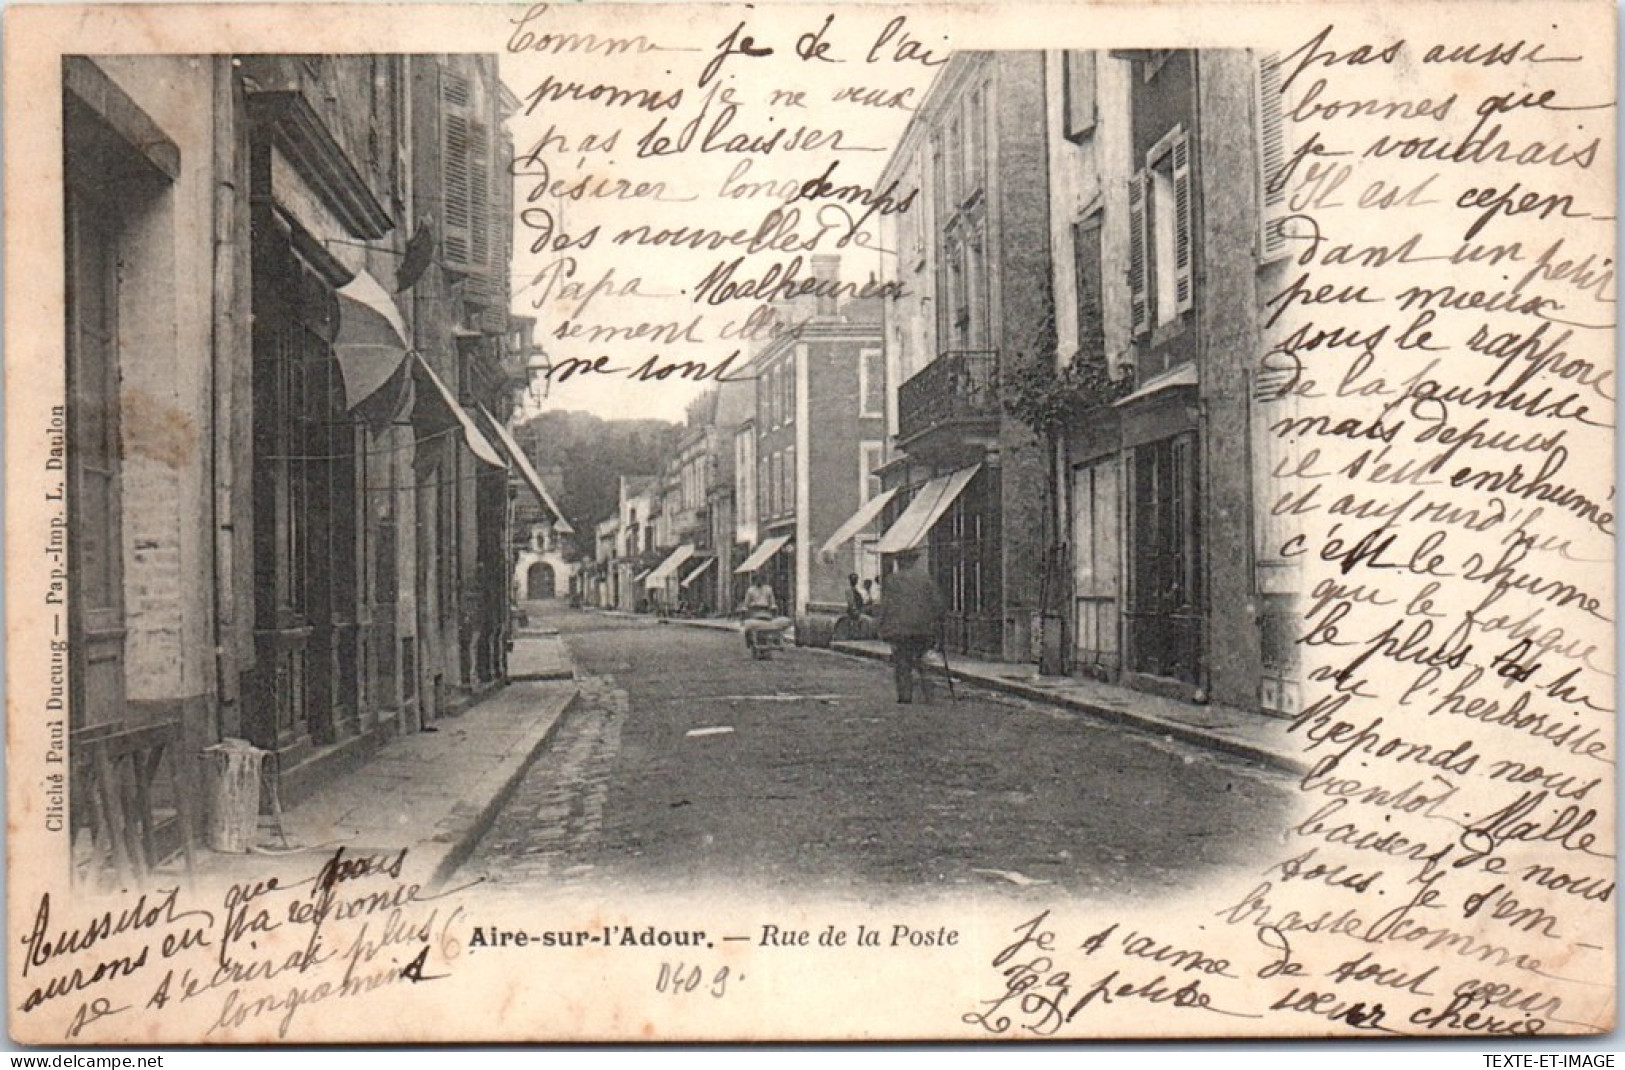 Comme je te l'ai
promis je ne veux
pas te laisser
désirer longtemps
des nouvelles de
Papa. Malheureu
sement elles
ne sont
pas aussi
bonnes que
je voudrais
Il est cepen-
dant un petit
peu mieux
sous le rapport
de la jaunisse
mais depuis
il s'est enrhumé
et aujourd'hui
c'est le rhume
qui le fatigue
le plus. As tu
vu l'herboriste
Réponds nous
bientôt. Mille
baisers de nous
tous. Je t'em-
brasse comme
je t'aime de tout cœur
Ta petite sœur chérie
L. D.
Aussitôt que nous
aurons eu ta réponse
je t'écrirai plus
longuement
Cliché Paul Ducung — Pap.-Imp. L. Daulon
Aire-sur-l'Adour. — Rue de la Poste
D40 9.
delcampe.net
TEXTE-ET-IMAGE